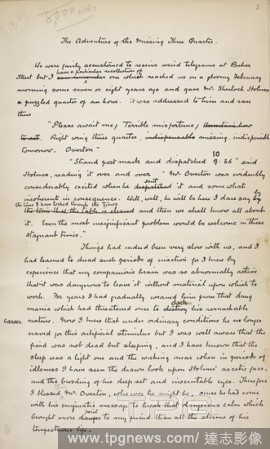 The Adventure of the Missing Three Quarter.
We were fairly accustomed to receive weird telegrams at Baker
have a particular recollection of
Street but I one which reached us on a gloomy February
morning some seven or eight years ago and gave Mr. Sherlock Holmes
a puzzled quarter of an hour. It was addressed to him and ran
thus
"Please await me, Terrible misfortune,
Right wing three quarter, indispensable missing, indispensible
tomorrow. Overton"
10
"Strand post mark and dispatched 9.36" said
Holmes, reading it over and over. Mr Overton was evidently
sent
considerably excited when he despatched it and somewhat
incoherent in consequence. Well, well, he will be here I dare say by
the time I have looked through the Times
the time that the table is cleared and then we shall know all about
it. Even the most insignificant problem would be welcome in these
stagnant times."
Things had indeed been very slow with us, and I
had learned to dread such periods of inaction for I knew by
experience that my companion's brain was so abnormally active
that it was dangerous to leave it without material upon which to
work. For years I had gradually weaned him from that drug
check
mania which had threatened once to destroy his remarkable
career.
nature. Now I knew that under ordinary conditions he no longer
craved for this artificial stimulus but I was well aware that the
fiend was not dead but sleeping, and I have known that the
sleep was a light one and the waking near when in periods of
idleness I have seen the drawn look upon Holmes' ascetic face,
and the brooding of his deepset and inscrutable eyes. Therefore
I blessed Mr. Overton, whoever he might be, since he had come
with his enigmatic message to break that dangerous calm which
brought more danger to my friend than all the storms of his
tempestuous life.
www.tpgnews.com/達志影像